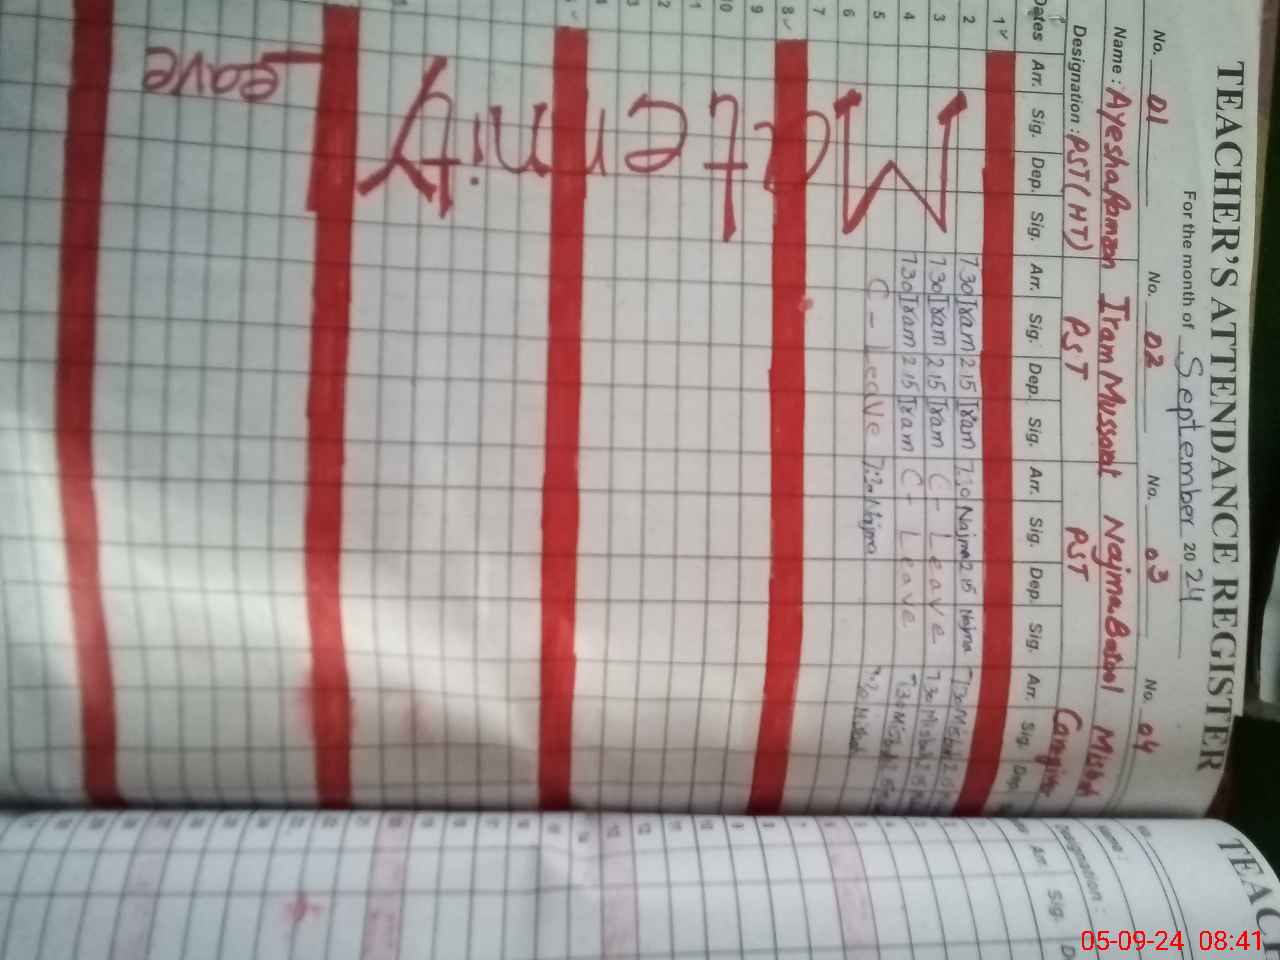 TEACHER'S ATTENDANCE REGISTER
For the month of September 2024
No. 01 No. 02 No. 03 No. 04
Name : Ayesha Ramzan Iram Mussarat Najma Batool Misbah
Designation : PST (HT) PST PST Caregiver
Dates Arr. Sig. Dep. Sig. Arr. Sig. Dep. Sig. Arr. Sig. Dep. Sig. Arr. Sig. Dep.
1 ✓
2 7 30 Iram 2 15 Iram 7:30 Najma 2 15 Najma 7:30 Misbah 2 15
3 7 30 Iram 2 15 Iram C - Leave 7 30 Misbah 2 15
4 7 30 Iram 2 15 Iram C - Leave 7 30 Misbah
5 C - Leave Najma Misbah
6
7
8 ✓
9
10
Maternity
Leave
TEAC
Name :
Designation :
Arr. Sig.
05-09-24 08:41